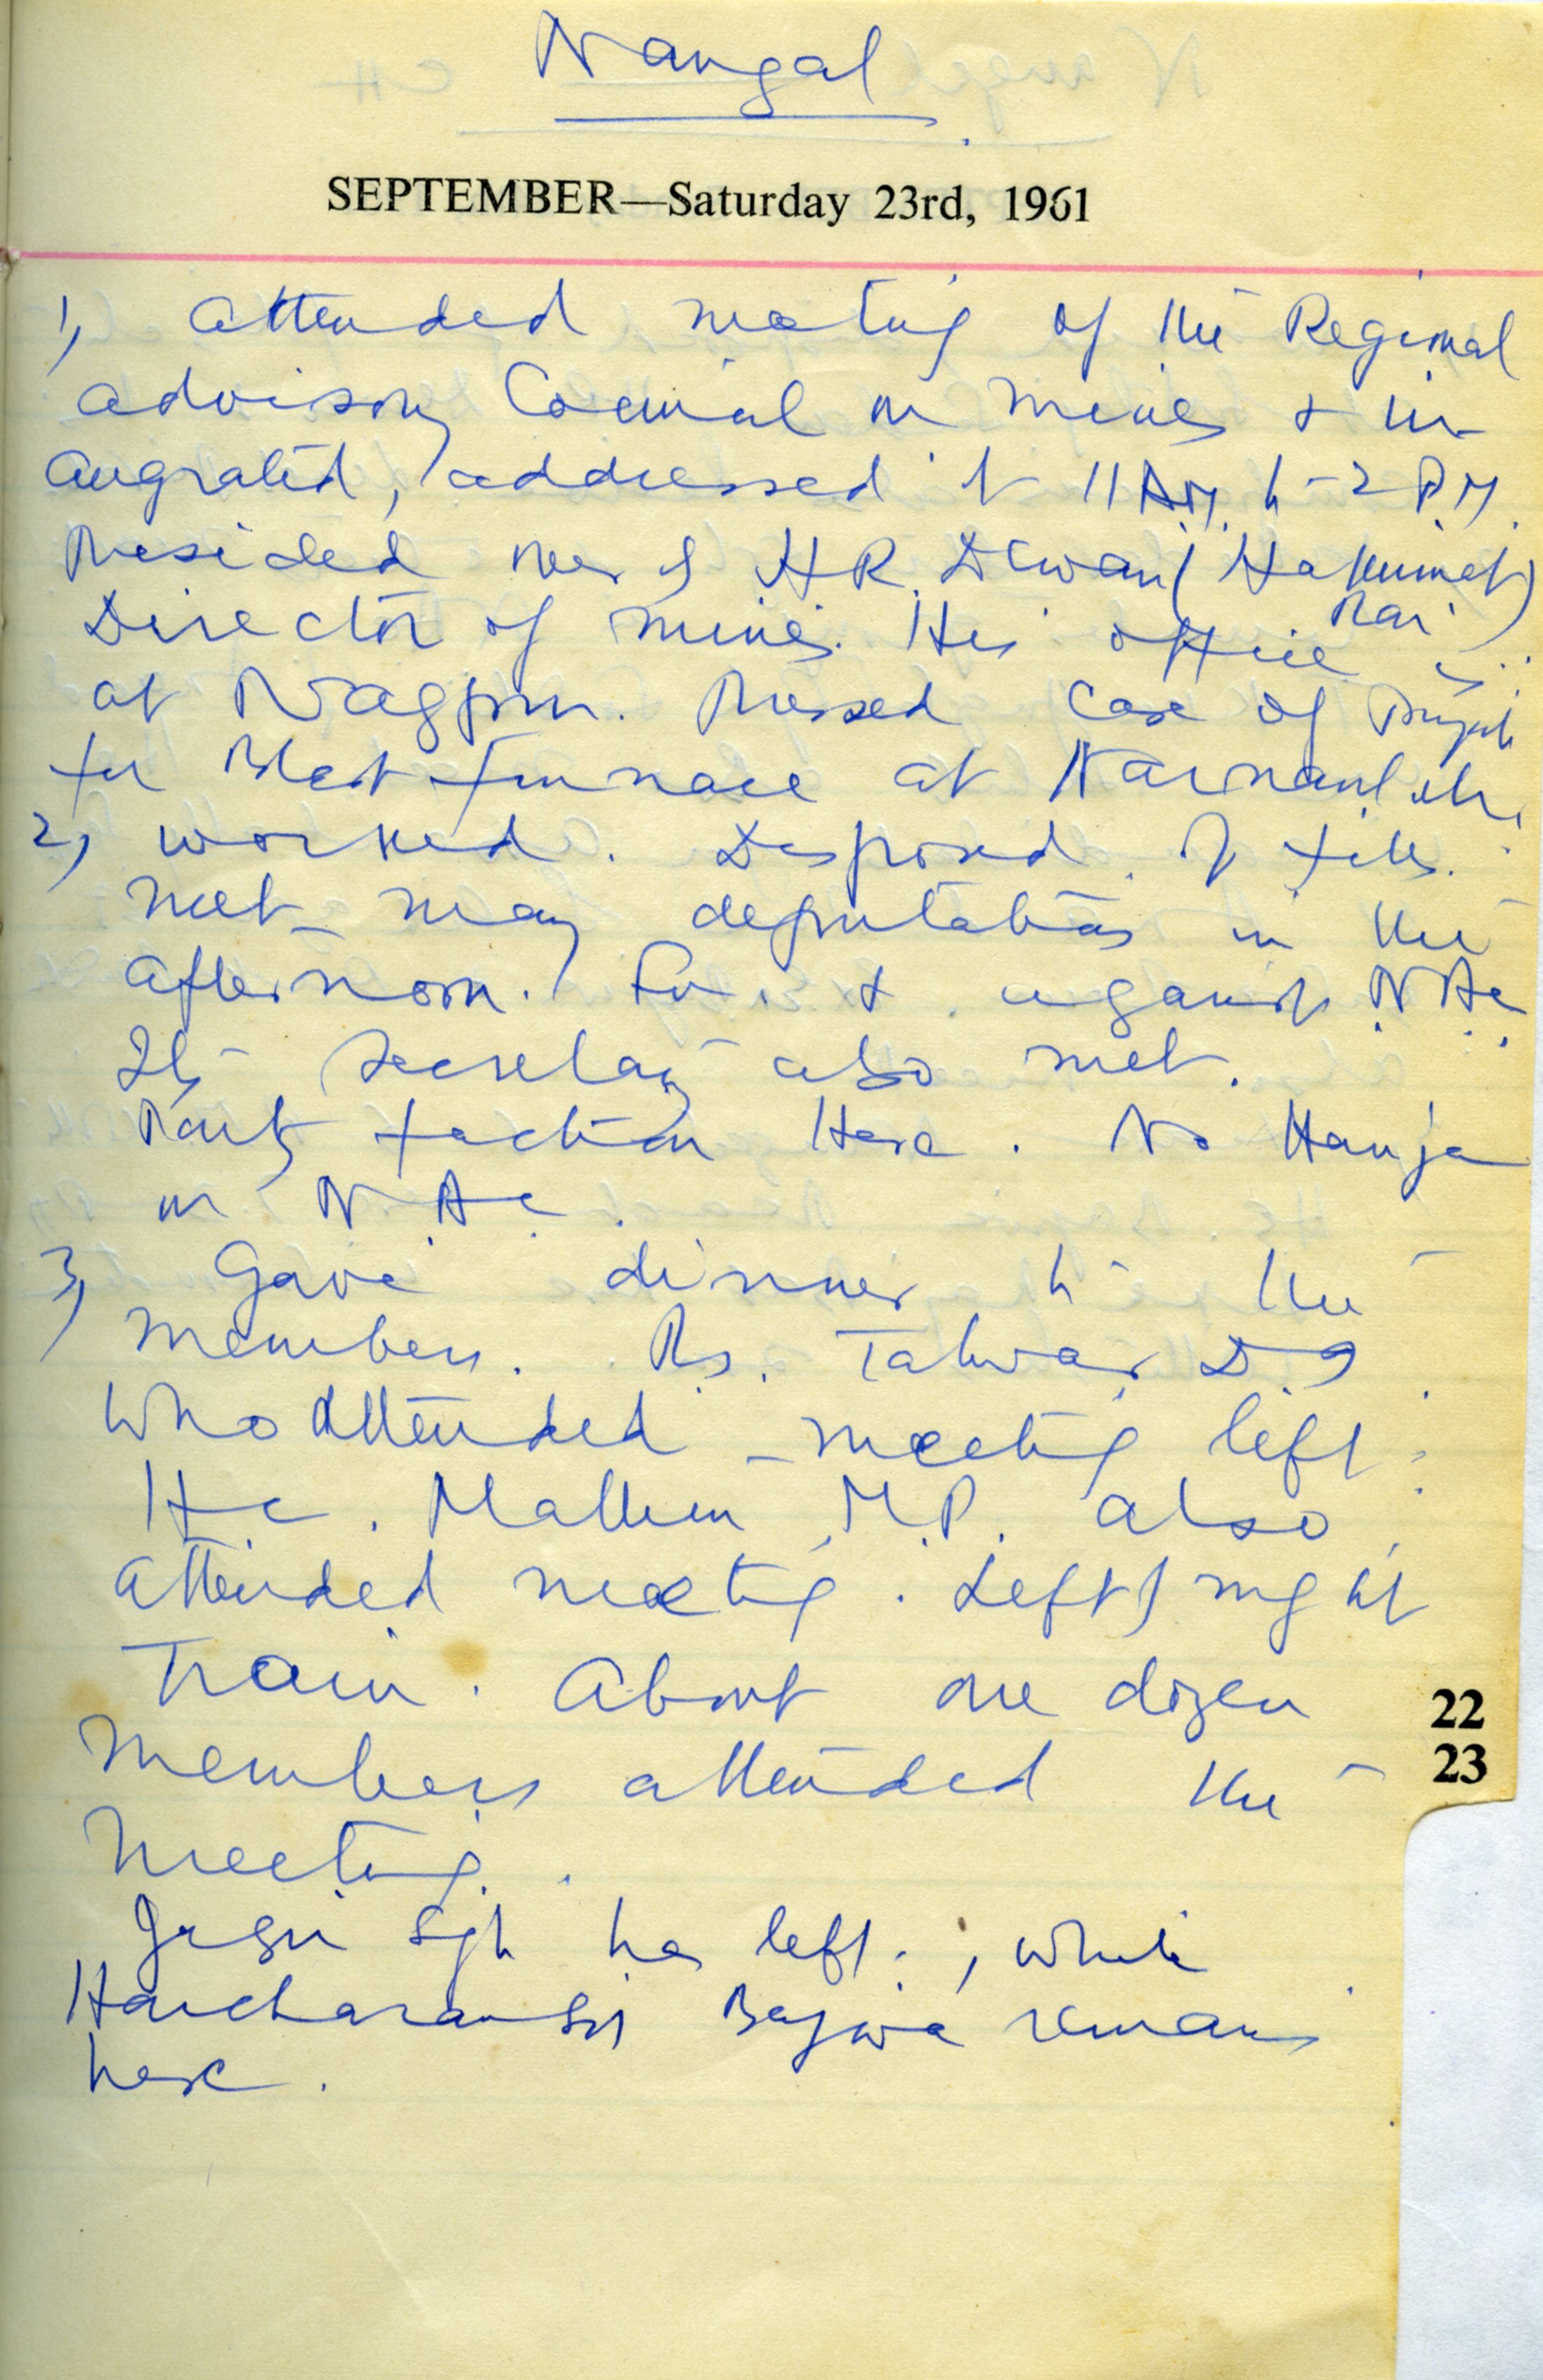 Nangal
SEPTEMBER—Saturday 23rd, 1961
1) attended meeting of the Regional
advisory Council on mines & in
augrated, addressed it 11 AM to 2 P.M.
Presided over by H R. Dewan (Hakumat
Rai)
Director of mines. His office is
at Nagpur. Pressed case of Punjab
for Blast furnace at Narnaul etc.
2) worked. Disposed of files.
met many deputations in the
afternoon. For & against NAC
Its Secretary also met.
Party faction Here. No Hanja
in N.A.C.
3) Gave dinner to the
members. Rs. Talwar D
Who attended meeting left.
H.C. Mathur M.P. also
attended meeting. Left by night
Train. About one dozen
members attended the
meeting.
22
23
Sgh has left, while
Harcharan Sgh Bajwa remains
here.